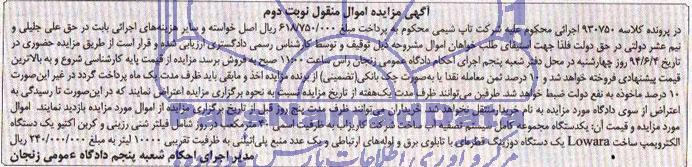 آگهی مزایده اموال منقول نوبت دوم
در پرونده کلاسه ۹۳۰۷۵۰ اجرائی محکوم علیه شرکت تاپ شیمی محکوم به پرداخت مبلغ ۶۱۸/۷۵۰/۰۰۰ ریال اصل خواسته و سایر هزینه‌های اجرائی بابت در حق علی جلیلی و
نیم عشر دولتی در حق دولت فلذا جهت استیفای طلب خواهان اموال مشروحه ذیل توقیف و توسط کارشناس رسمی دادگستری ارزیابی شده و قرار است از طریق مزایده حضوری در
تاریخ ۹۴/۶/۴ روز چهارشنبه در محل دفتر شعبه پنجم اجرای احکام دادگاه عمومی زنجان راس ساعت ۱۱:۰۰ صبح به فروش برسد مزایده از قیمت پایه کارشناسی شروع و به بالاترین
قیمت پیشنهادی فروخته خواهد شد و ۱۰ درصد ثمن معامله نقدا یا به‌صورت چک بانکی(تضمینی) از برنده مزایده اخذ و مابقی باید ظرف مدت یک ماه پرداخت گردد در غیر این‌صورت
۱۰ درصد ماخوذه به نفع دولت ضبط خواهد شد. طرفین می‌توانند ظرف مدت یک‌هفته از تاریخ مزایده نسبت به نحوه برگزاری مزایده اعتراض نمایند که در این‌صورت تا رسیدگی به
اعتراض از سوی دادگاه مورد مزایده به نام خریدار منتقل نخواهد شد. خریداران می‌توانند ظرف مدت پنج روز قبل از تاریخ برگزاری مزایده از اموال مورد مزایده بازدید نمایند. اموال
مورد مزایده و قیمت آن: یکدستگاه مجموعه کامل سیستم تصفیه آب ساخت شرکت کاریزاب به ظرفیت اسمی ۲۰ مترمکعب در روز شامل فیلتر شنی رزینی و کربن اکتیو یک دستگاه
الکتروپمپ ساخت Lowara یک دستگاه دوزینگ قطره‌ای با تابلوی برق و لوله‌های ارتباطی و یک عدد منبع پلی‌اتیلنی به ظرفیت تقریبی ۱۰۰۰۰ لیتر به مبلغ ۲۴۰/۰۰۰/۰۰۰ ریال
مدیر اجرای احکام شعبه پنجم دادگاه عمومی زنجان